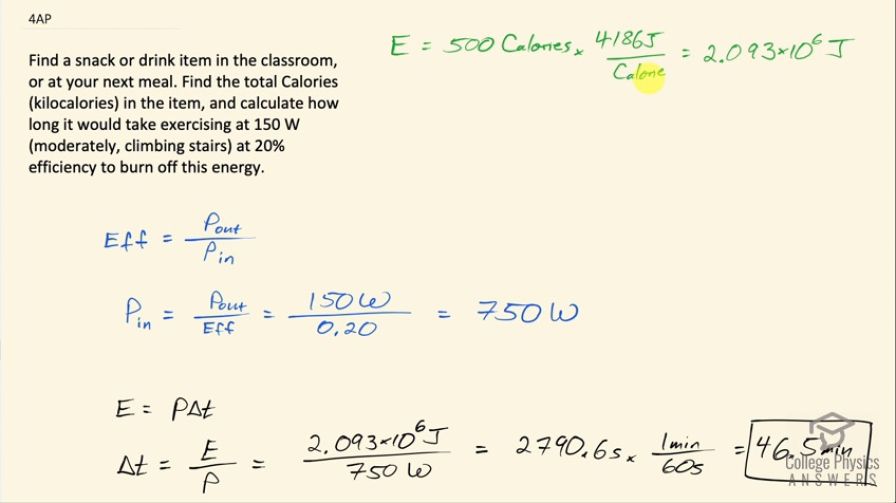 4AP
Find a snack or drink item in the classroom,
or at your next meal. Find the total Calories
(kilocalories) in the item, and calculate how
long it would take exercising at 150 W
(moderately, climbing stairs) at 20%
efficiency to burn off this energy.
E = 500 Calories × 4186J / Calorie = 2.093×10⁶ J
Eff = Pout / Pin
Pin = Pout / Eff = 150W / 0.20 = 750 W
E = PΔt
Δt = E / P = 2.093×10⁶J / 750 W = 2790.6s × 1min / 60s = 46.5min
College Physics
ANSWERS